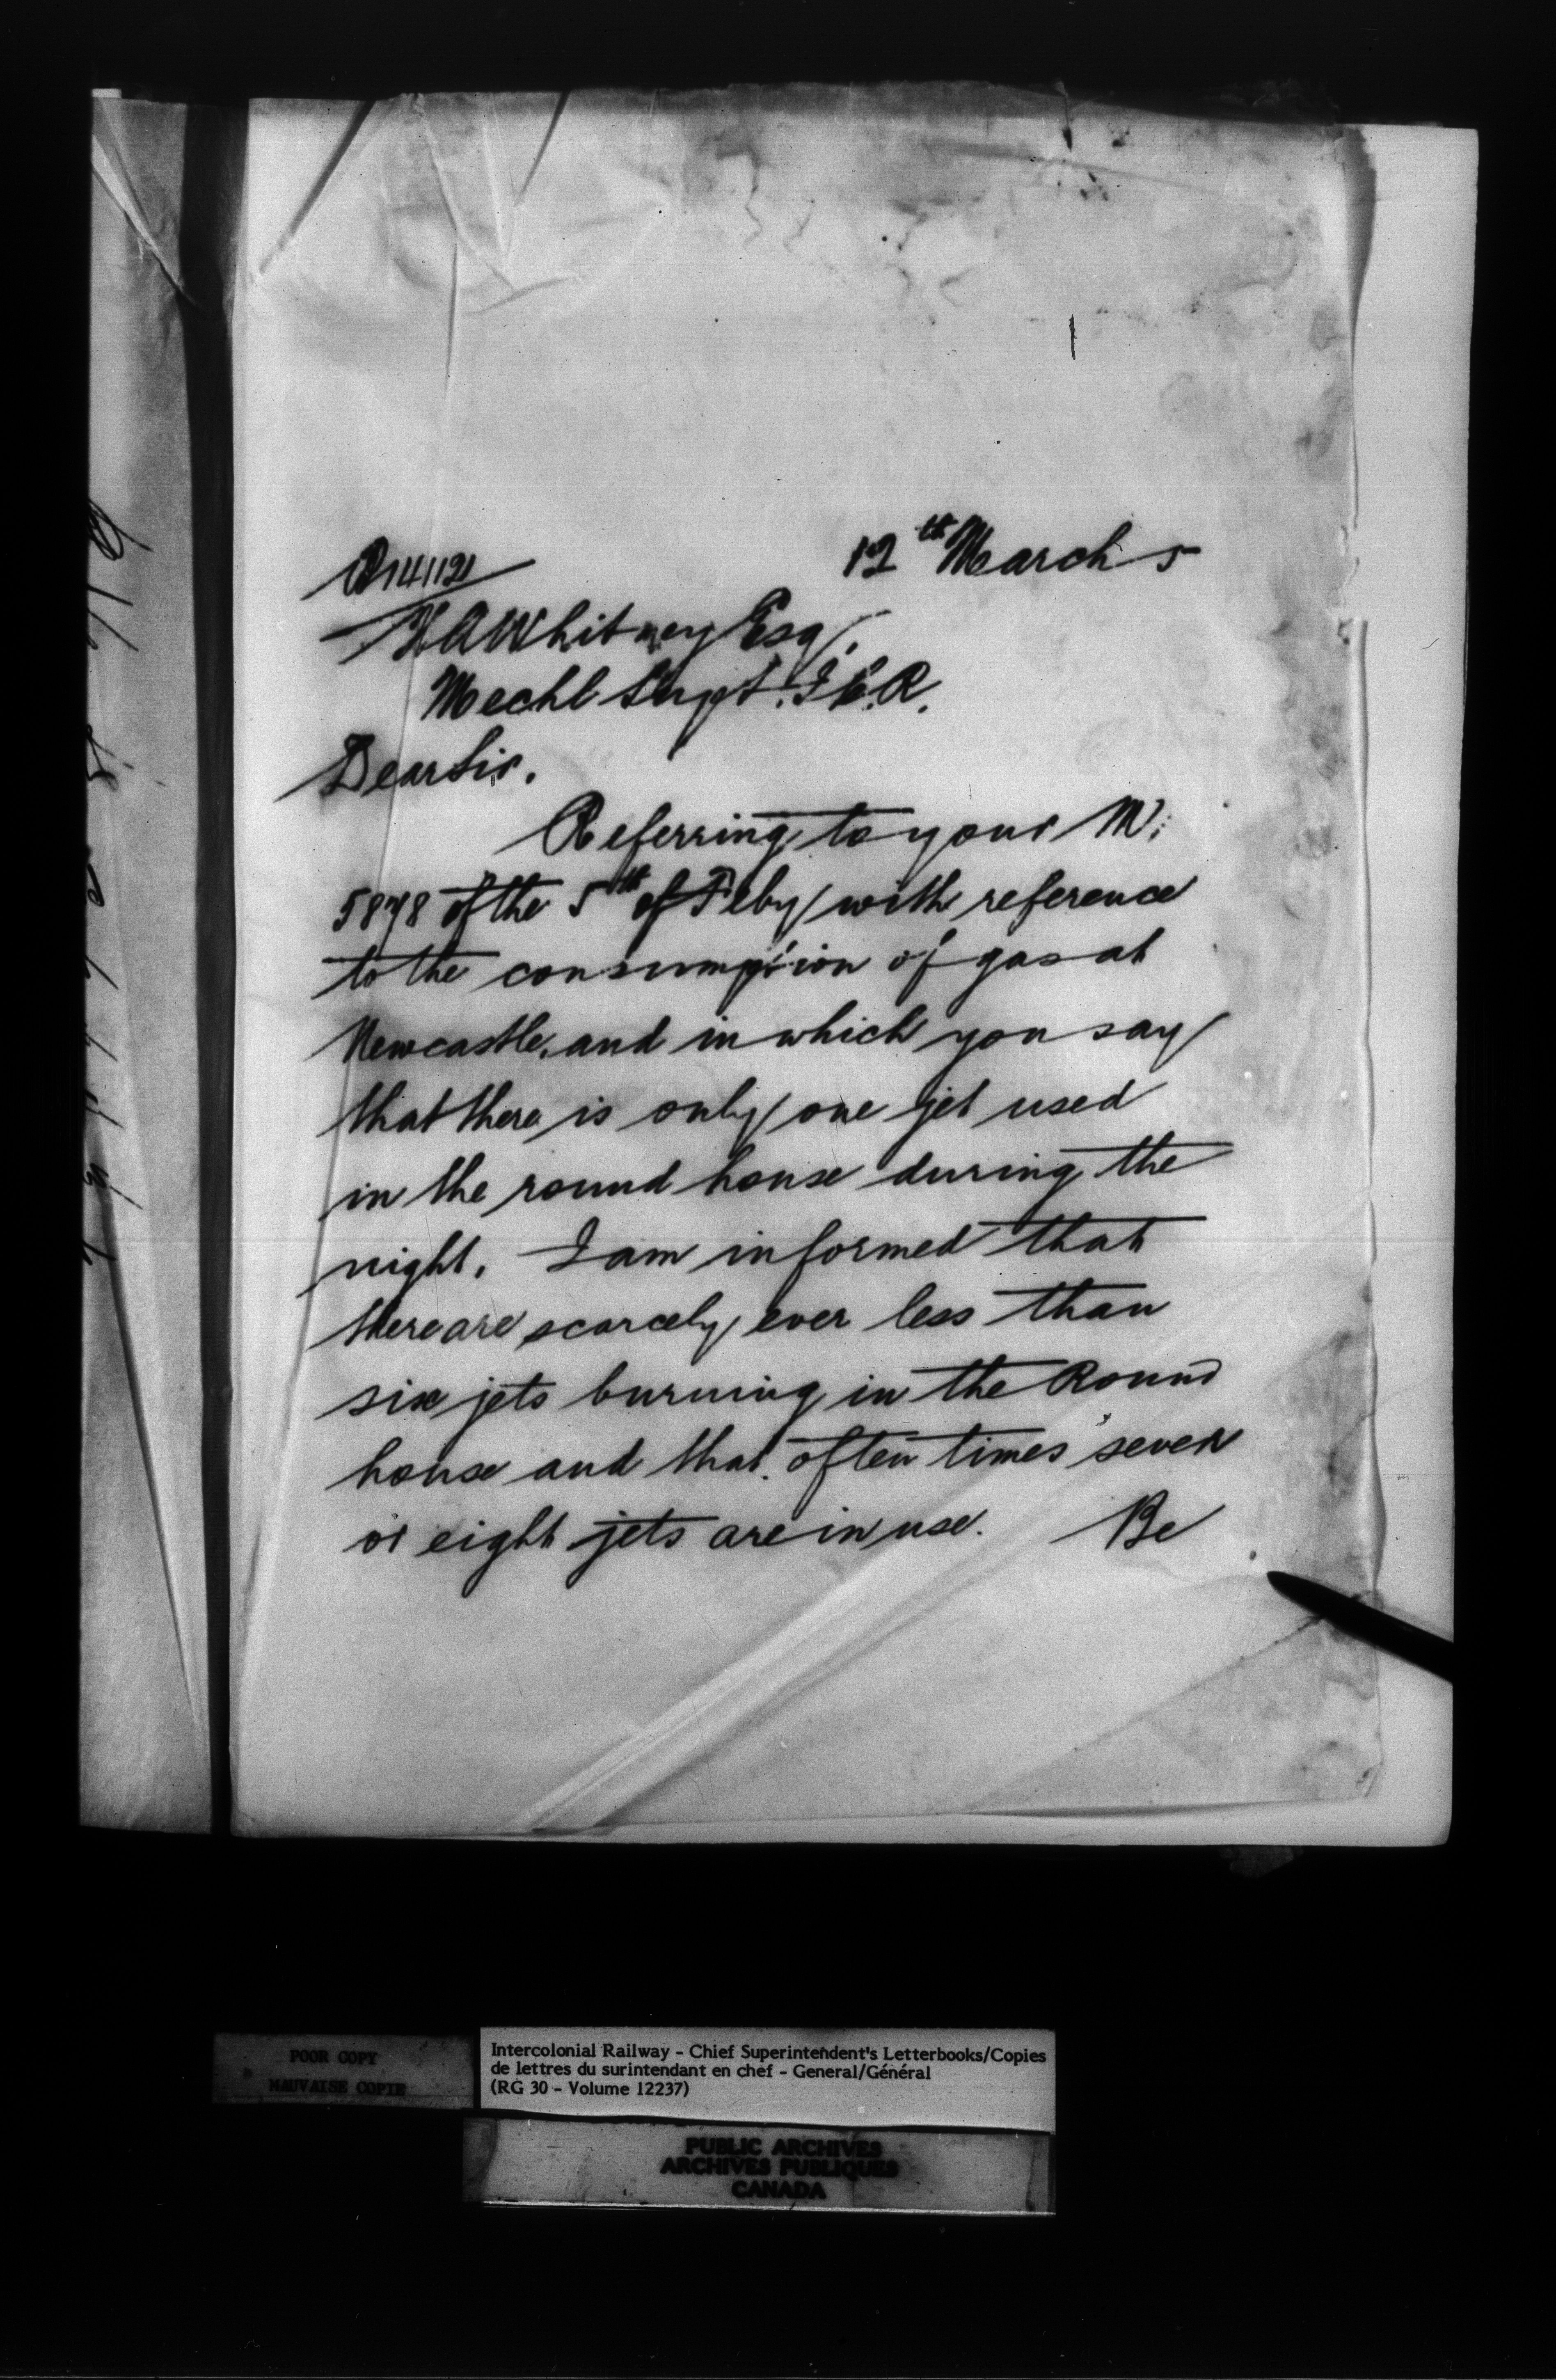 12th March 5
H A Whitney Esq,
Mechl Supt. I.C.R.
Dear Sir.
Referring to your M;
5878 of the 5th of Feby with reference
to the consumption of gas at
Newcastle, and in which you say
that there is only one jet used
in the round house during the
night. I am informed that
there are scarcely ever less than
six jets burning in the Round
house and that often times seven
or eight jets are in use. Be
POOR COPY
MAUVAISE COPIE
Intercolonial Railway - Chief Superintendent's Letterbooks/Copies
de lettres du surintendant en chef - General/Général
(RG 30 - Volume 12237)
PUBLIC ARCHIVES
ARCHIVES PUBLIQUES
CANADA